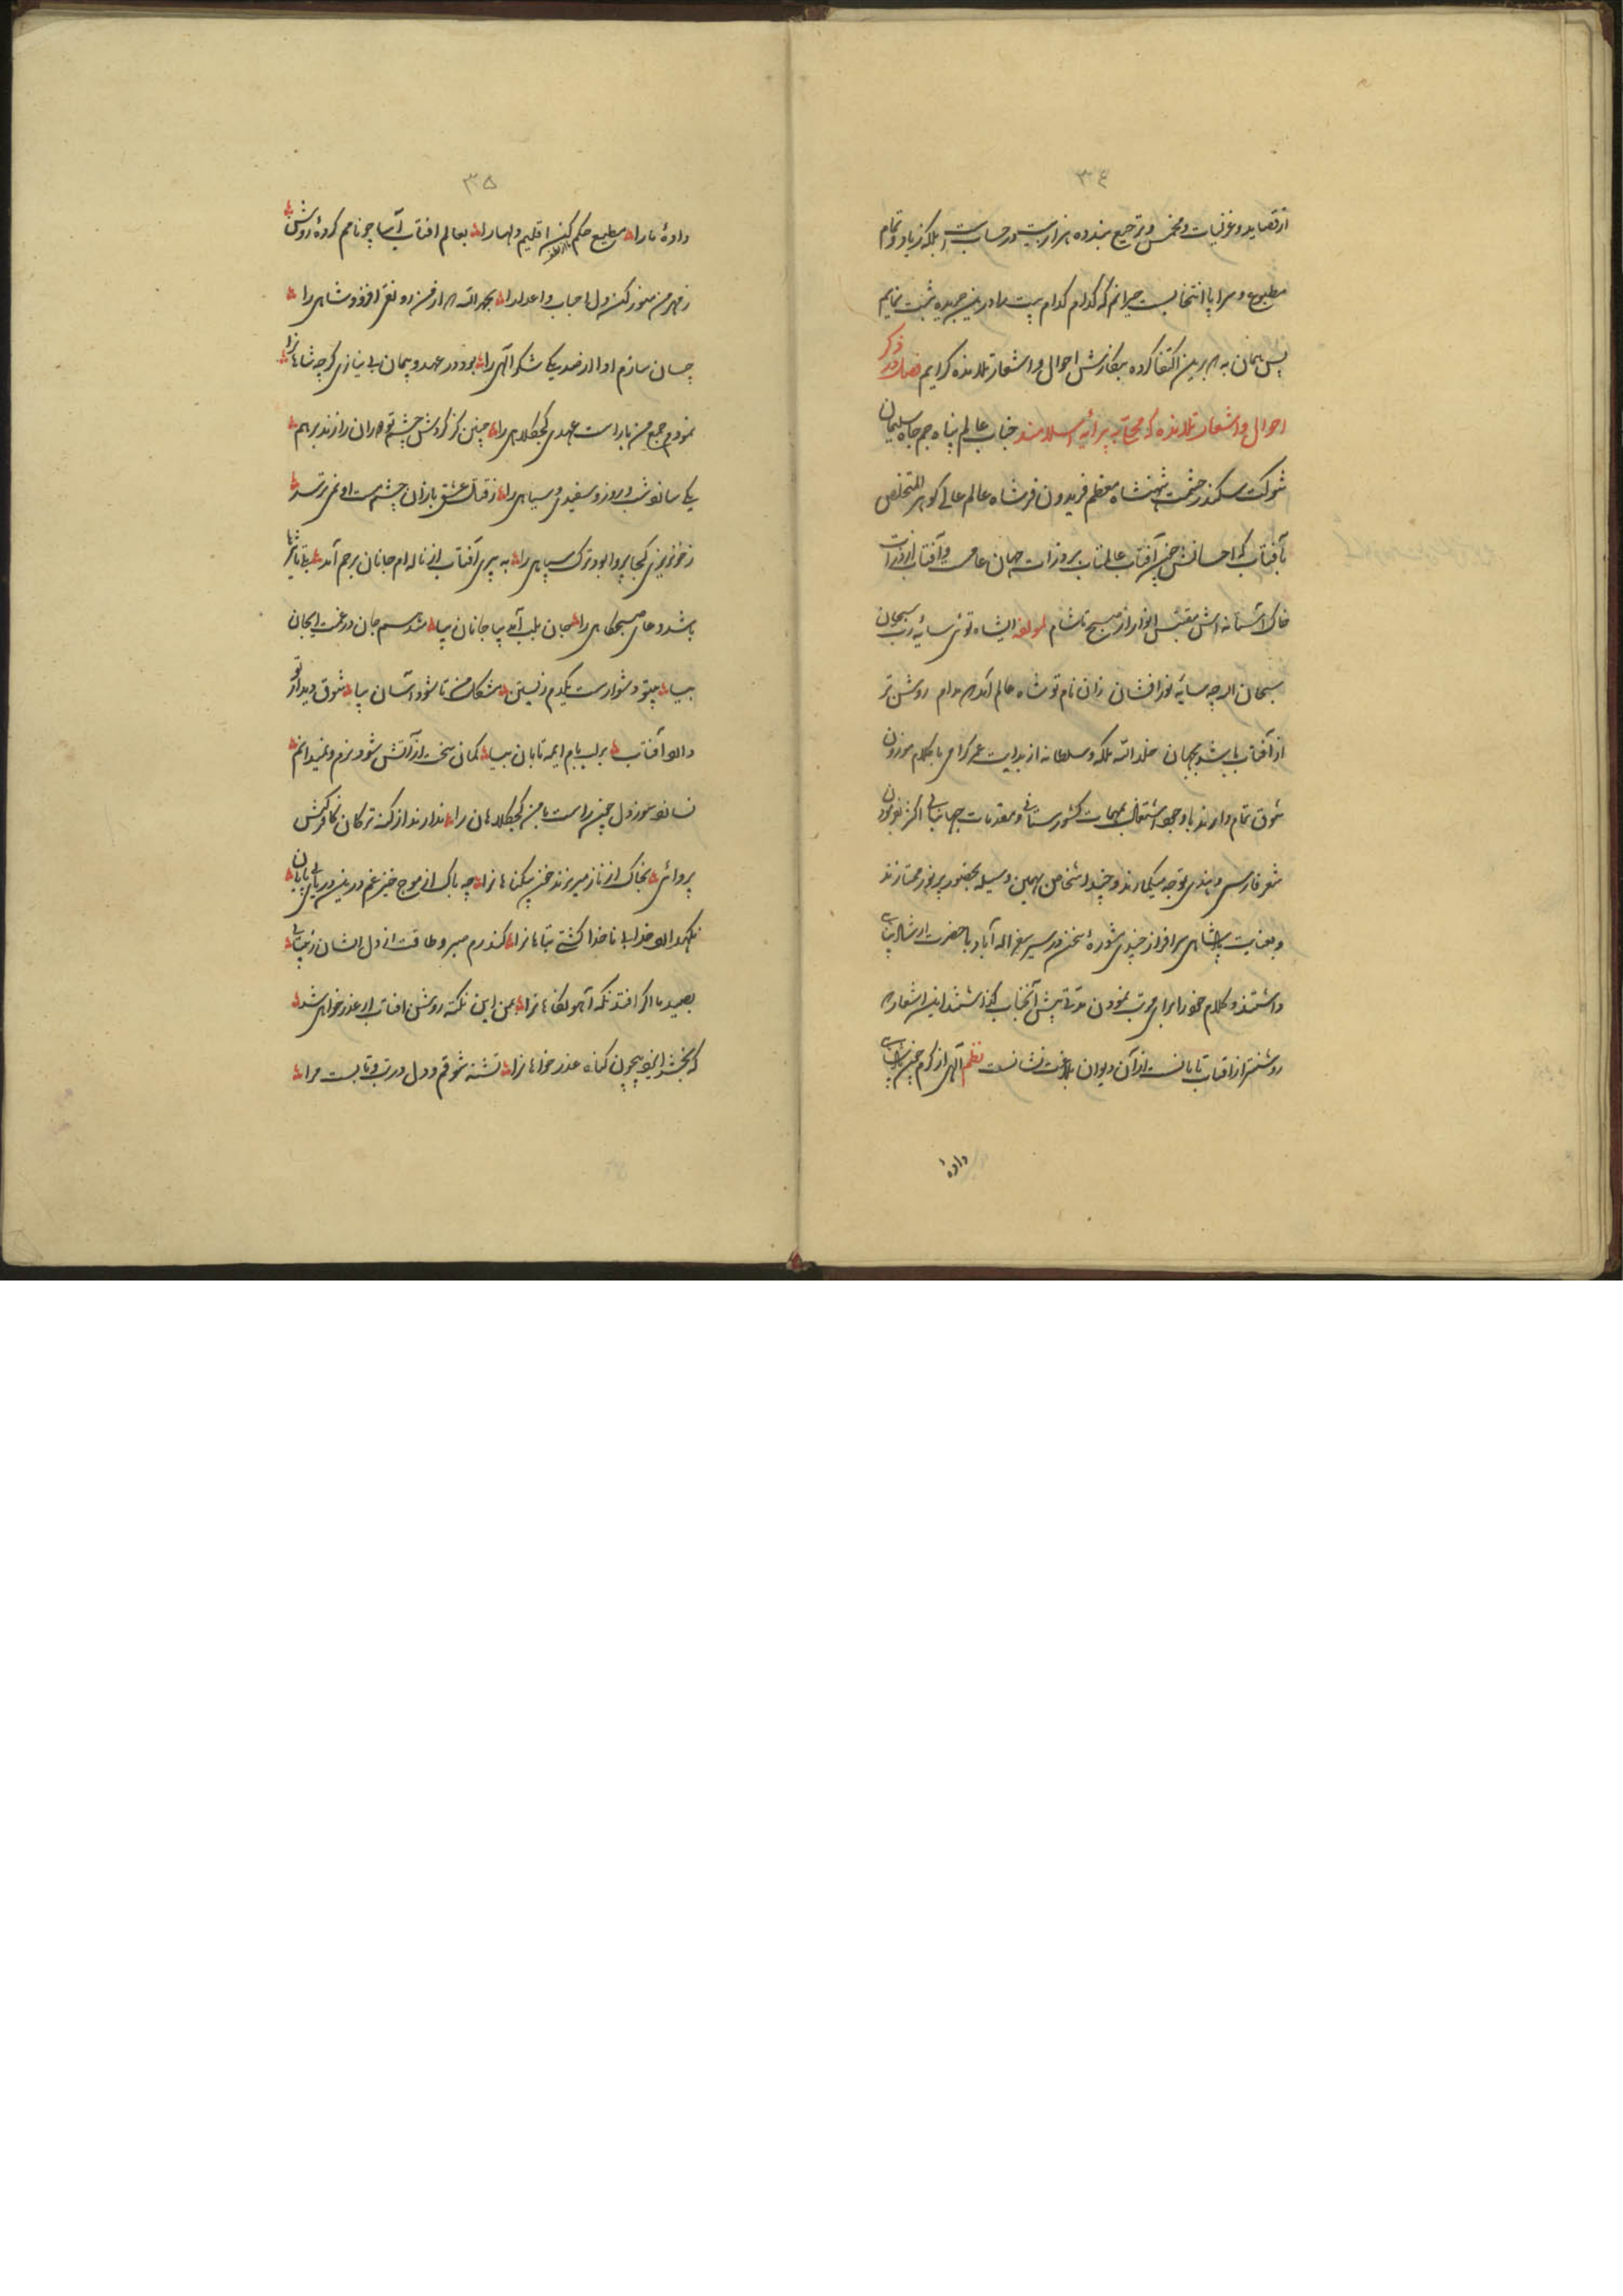 ۳۴
از قصاید و غزلیات و مخمس و ترجیع بند ده هزار بیت در حسابست بلکه زیاد و تمام
مطبوع و سراپا انتخابست حیرانم که کدام کدام بیت را درین جریده ثبت نمایم
پس همان به که برین اکتفا کرده بنگارش احوال و اشعار تلامذه گرایم فصل در ذکر
احوال و اشعار تلامذه که به پرایه اسلامند جناب عالم پناه جم جاه سلیمان
شوکت سکندر حشمت شهنشاه معظم فریدون فر شاه عالم عالی گوهر المتخلص
بآفتاب که احسانش چون آفتاب عالمتاب بر ذرات جهان عام و آفتاب از ذرات
خاک آستانه اش مقتبس انوار از صبح تا شام لمولفه ایشاه توئی سایه رب سبحان
سبحان الله چه سایه نور افشان زان نام تو شاه عالم آمد مدام روشن تر
از آفتاب باشد بجهان خلد الله ملکه و سلطانه از بدایت عمر گرامی با کلام موزون
شوق تمام دارند با وجود اشتغال بمهمات کشورستانی و مقدمات جهانبانی اکثر بموزون
شعر فارسی و هندی توجه میگمارند و چند اشخاص بهمین وسیله بحضور پرنور ممتازند
و بعنایت پادشاهی سرافراز چندی مشوره سخن در سیر سفر اله آباد با حضرت ارشاد پناهی
داشتند و کلام خود را برای مرتب نمودن مدتی پیش آنجناب گذاشتند این اشعار که
روشنتر از آفتاب تابانست از آن دیوان بلاغت نشانست نظم الهی از کرم چون پادشاهی
دادهٔ
۳۵
دادهٔ ما را مطیع حکم من کن اقلیم دلها را بعالم آفتاب آسا چو نامم کردهٔ روشن
ز مهر من منور کن دل احباب و اعدا را بحمد الله که از من رونقی افزود شاهی را
چسان سازم ادا از صد یکی شکر الهی را بود در عهد و پیمان بی نیازی گرچه شاهانرا
نمودم جمع من با راست عهدی کجکلاهی را چنین کز گردش چشم تو دوران را زند برهم
یکی سازد شب و روز و سفیدی و سیاهی را ز قتل عشق بازان چشم مست او نمی ترسد
ز خونریزی کجا پروا بود ترک سپاهی را به پیری آفتاب از ناله ام جانان برحم آمد
باشد دعای صبحگاهی را جان بلب آمد بیا جانان بیا شد سرم جان در غمت ایجان
بیا بیتو دشوارست یکدم زیستن مشکل من تا شود آسان بیا شوق دیدار تو
دارد آفتاب بر لب بام ایمه تابان بیا کمان سخت از آتش شود نرم و نمیدانم
نسازد سوز دل چون راست با من کجکلاهان را ندارند از کسی ترکان کافرکیش
پروائی بخاک از ناز میریزند خون بیگناهانرا چه باک از موج خیز غم درین دریای بی پایان
نگهدارد خدا بی ناخدا کشتی تباهانرا کند رم صبر و طاقت از دل ایشان ز بیتابی
بصید ما اگر افتد نگه آهو نگاهانرا بمن این نکته روشن آفتاب از عذر خواهی شد
که بخشد ایزد بیچون گناه عذر خواهانرا تشنه شوقم و دل در تب و تابست مرا